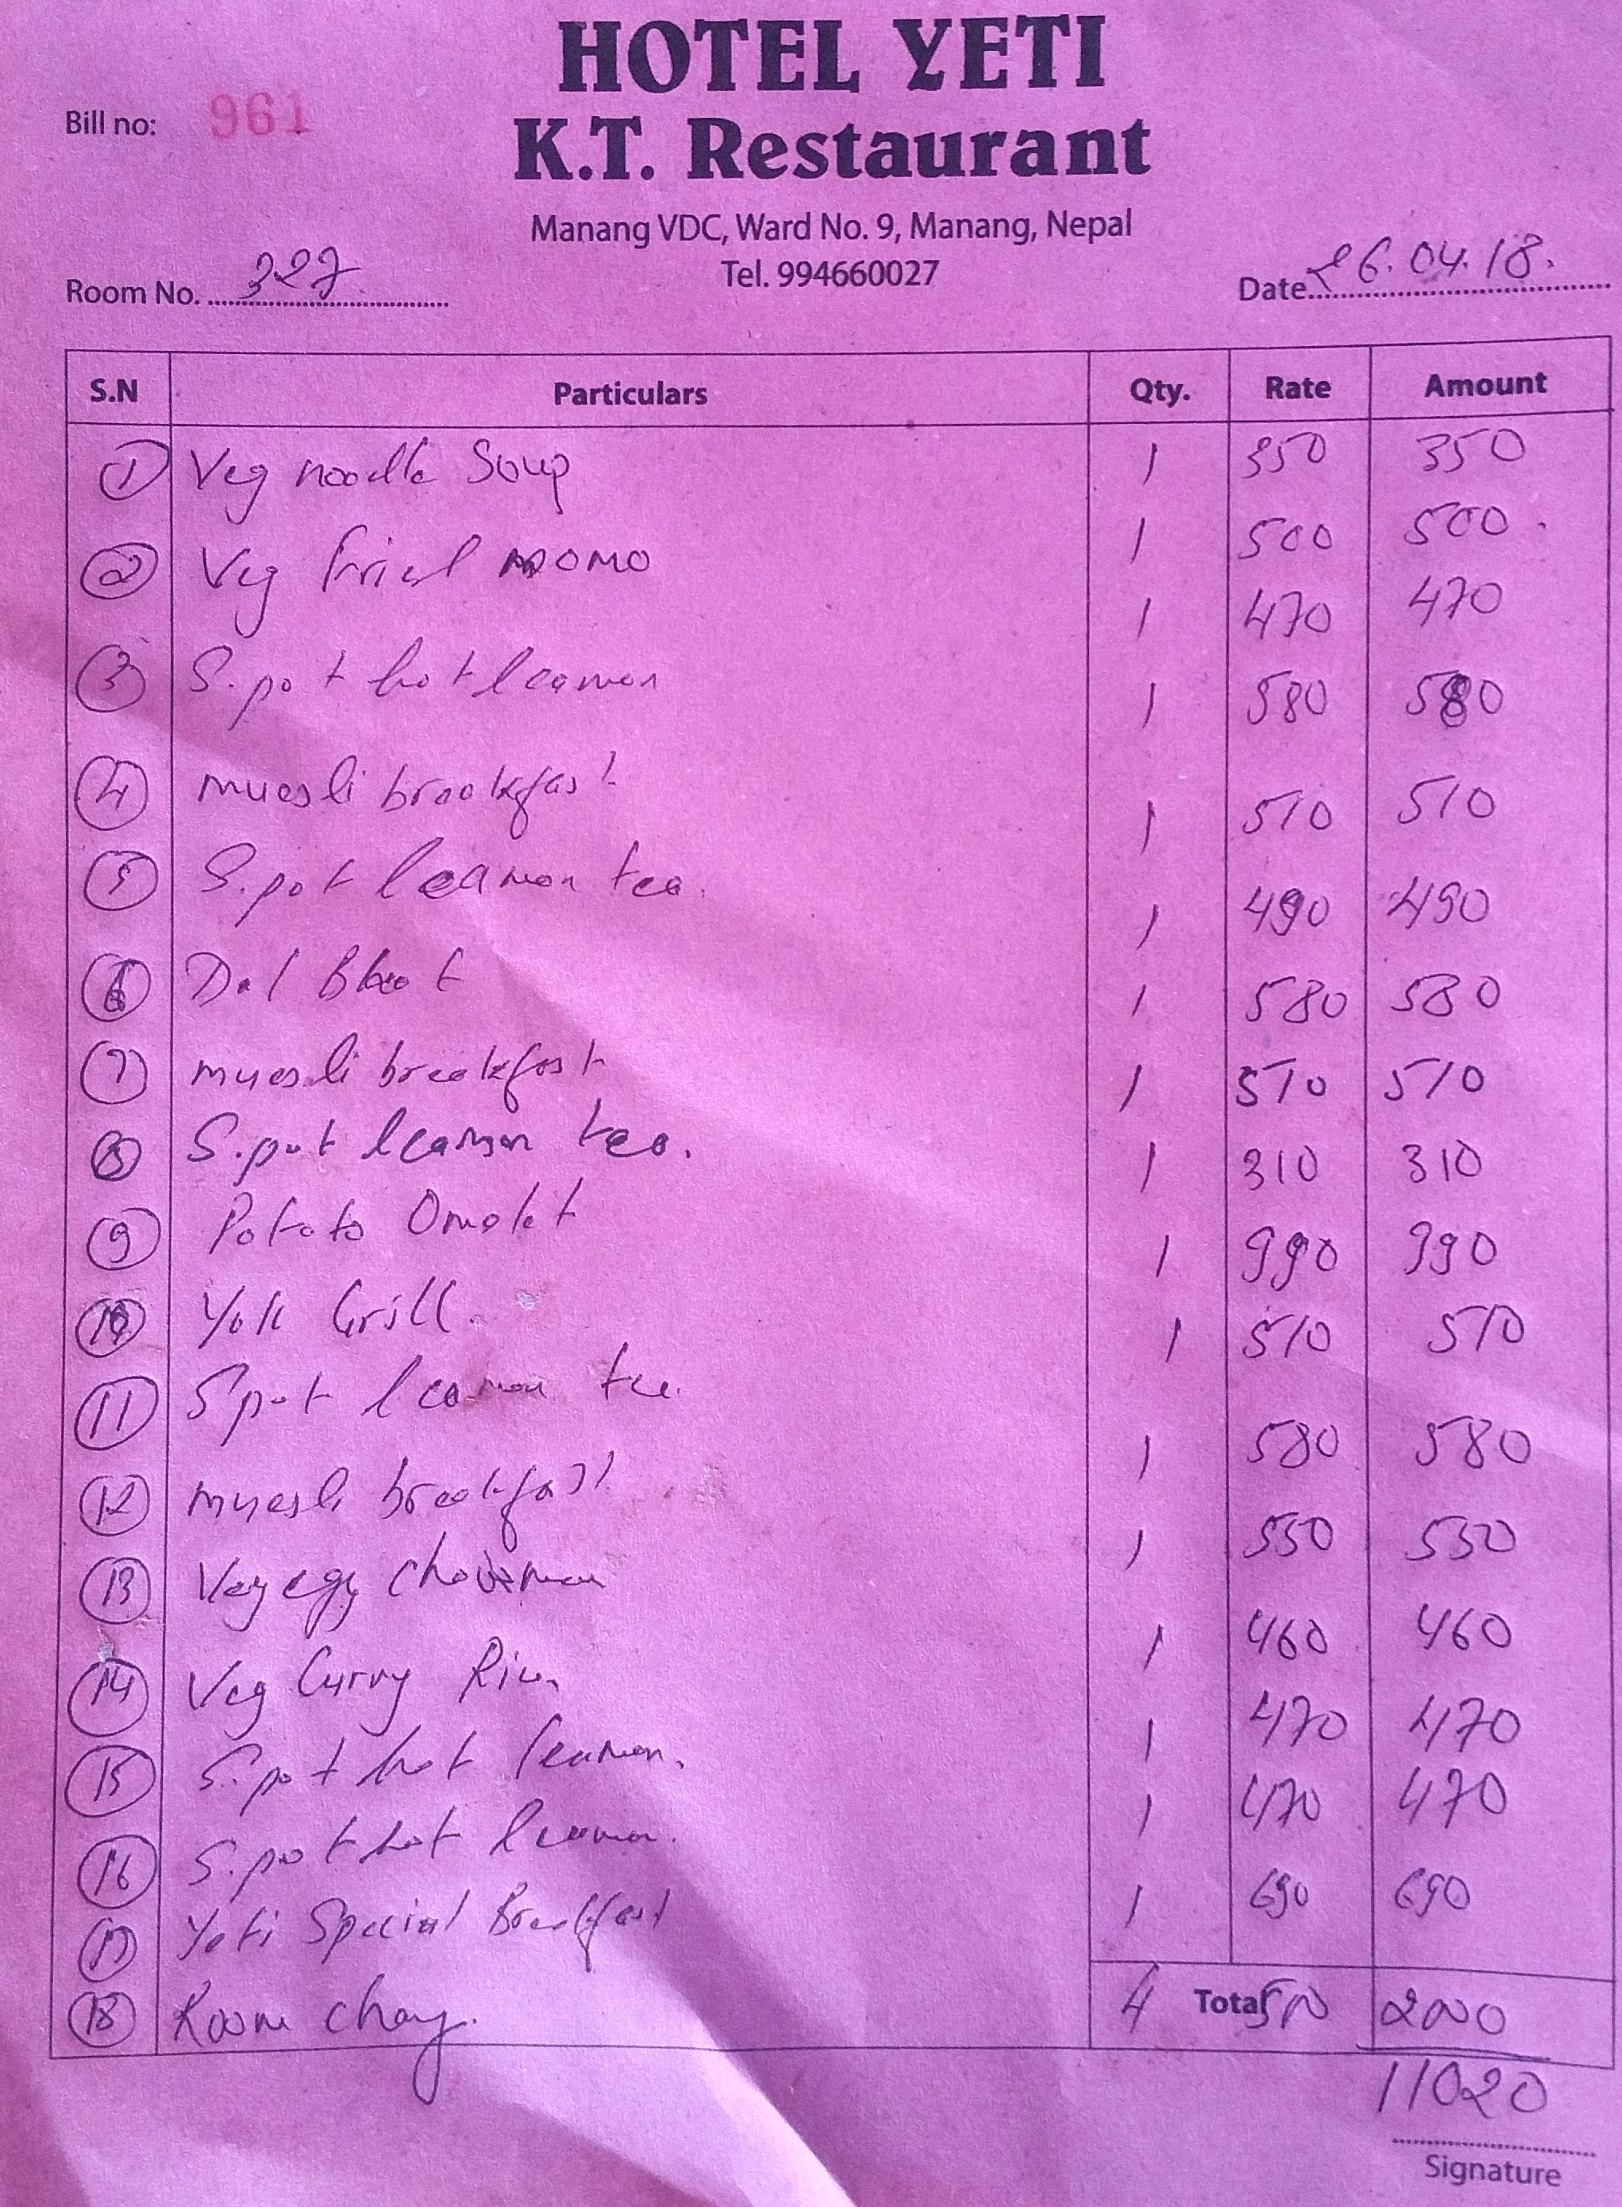 HOTEL YETI
Bill no: 961
K.T. Restaurant
Manang VDC, Ward No. 9, Manang, Nepal
Tel. 994660027
Room No. 327
Date 26.04.18.
S.N Particulars Qty. Rate Amount
1 Veg noodle Soup 1 350 350
2 Veg fried momo 1 500 500
3 S.pot hot leamon 1 470 470
4 muesli breakfast 1 580 580
5 S.pot leamon tea 1 510 510
6 Dal Bhat 1 490 490
7 muesli breakfast 1 580 580
8 S.pot leamon tea. 1 510 510
9 Potato Omelet 1 310 310
10 Yak Grill. 1 990 990
11 S pot leamon tea. 1 510 510
12 muesli breakfast 1 580 580
13 Veg egg 1 550 550
14 Veg Curry Rice 1 460 460
15 S.pot hot leamon. 1 470 470
16 S.pot hot leamon. 1 470 470
17 Yeti Special Breakfast 1 690 690
18 Room 4 Total 500 2000
11020
Signature